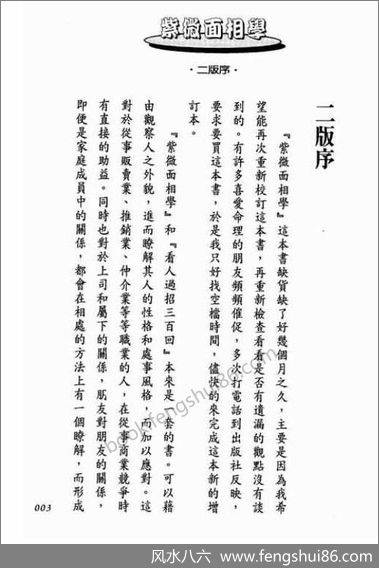 紫微面相學
·二版序·
二版序
『紫微面相學』這本書缺貨缺了好幾個月之久，主要是因為我希
望能再次重新校訂這本書，再重新檢查看看是否有遺漏的觀點沒有談
到的。有許多喜愛命理的朋友頻頻催促，多次打電話到出版社反映，
要求要買這本書，於是我只好找空檔時間，儘快的來完成這本新的增
訂本。
『紫微面相學』和『看人過招三百回』本來是一套的書。可以藉
由觀察人之外貌，進而瞭解其人的性格和處事風格，而加以應對。這
對於從事販賣業、推銷業、仲介業等等職業的人，在從事商業競爭時
有直接的助益。同時也對於上司和屬下的關係，朋友對朋友的關係，
即便是家庭成員中的關係，都會在相處的方法上有一個瞭解，而形成
003
bookfengshui86.com
风水八六 | www.fengshui86.com